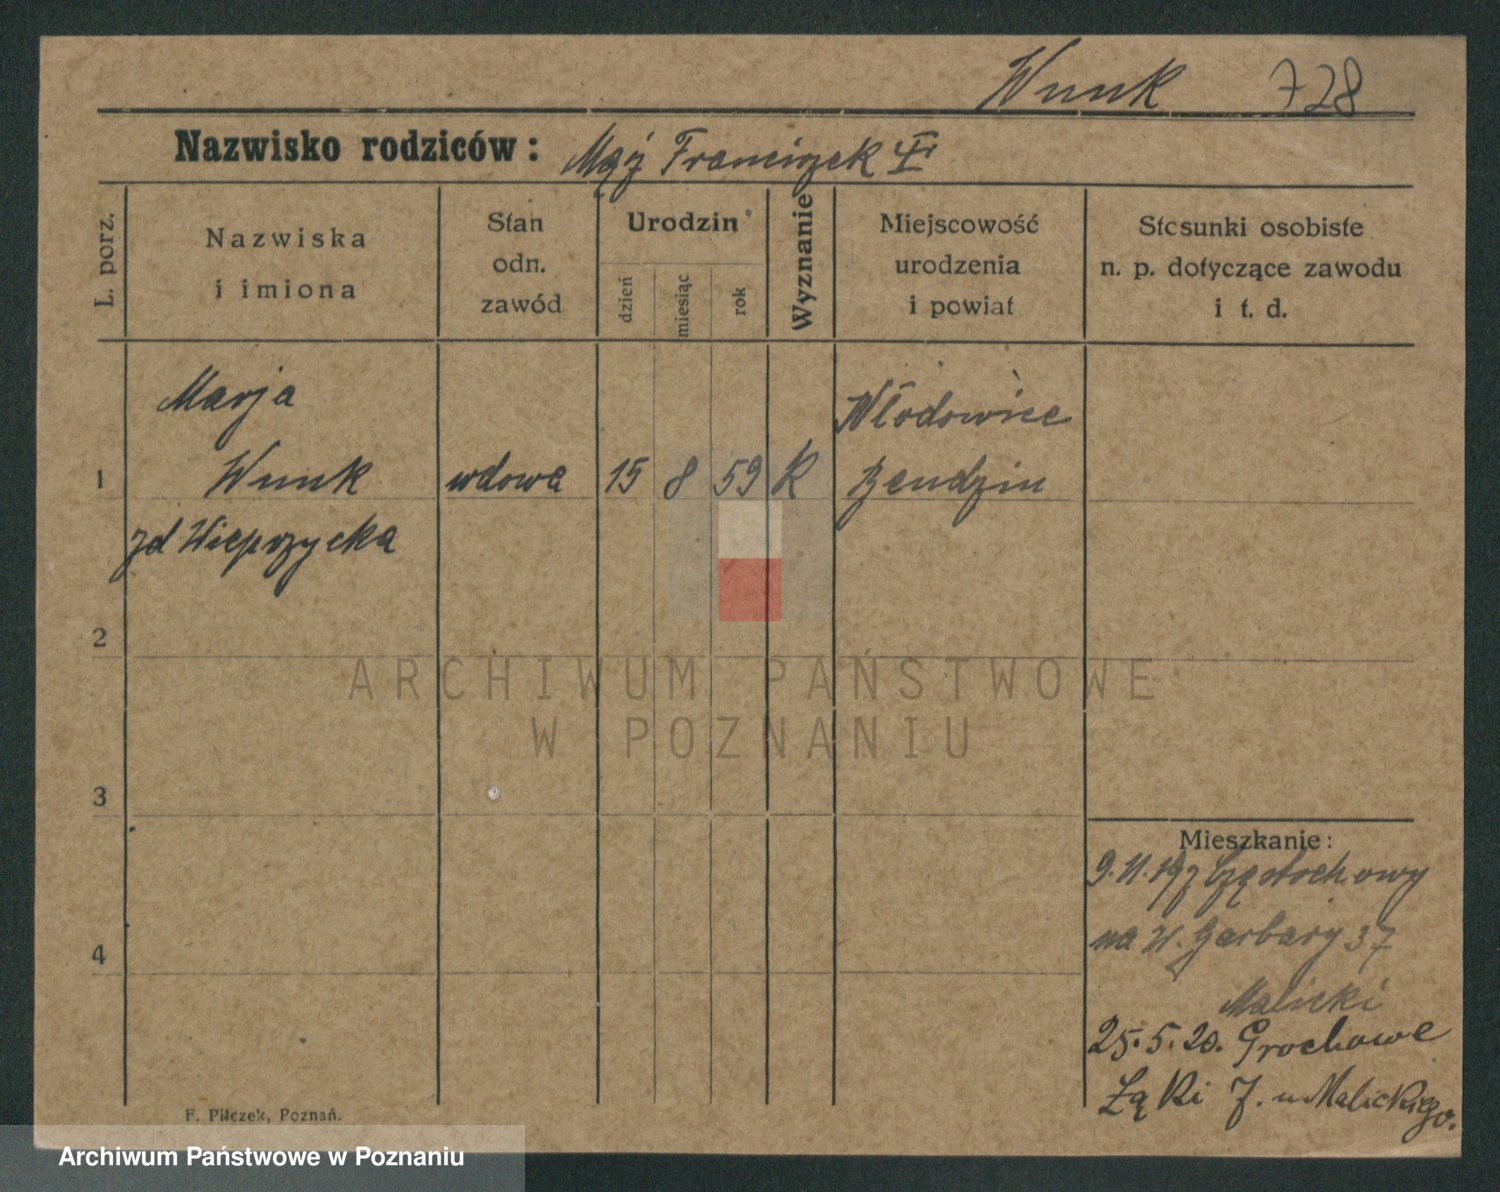 Wnuk 728
Nazwisko rodziców: Mąż Franciszek
L. porz.
Nazwiska
i imiona
Stan
odn.
zawód
Urodzin
dzień
miesiąc
rok
Wyznanie
Miejscowość
urodzenia
i powiat
Stosunki osobiste
n. p. dotyczące zawodu
i t. d.
Marja
Włodowice
1 Wnuk wdowa 15 8 59 K Bendzin
zd Wieprzycka
2
ARCHIWUM PAŃSTWOWE
W POZNANIU
3
Mieszkanie:
9.11.19 z Częstochowy
na W. Garbary 37
4
Malicki
25.5.20. Grochowe
Łąki 7. u Malickiego.
F. Pilczek, Poznań.
Archiwum Państwowe w Poznaniu